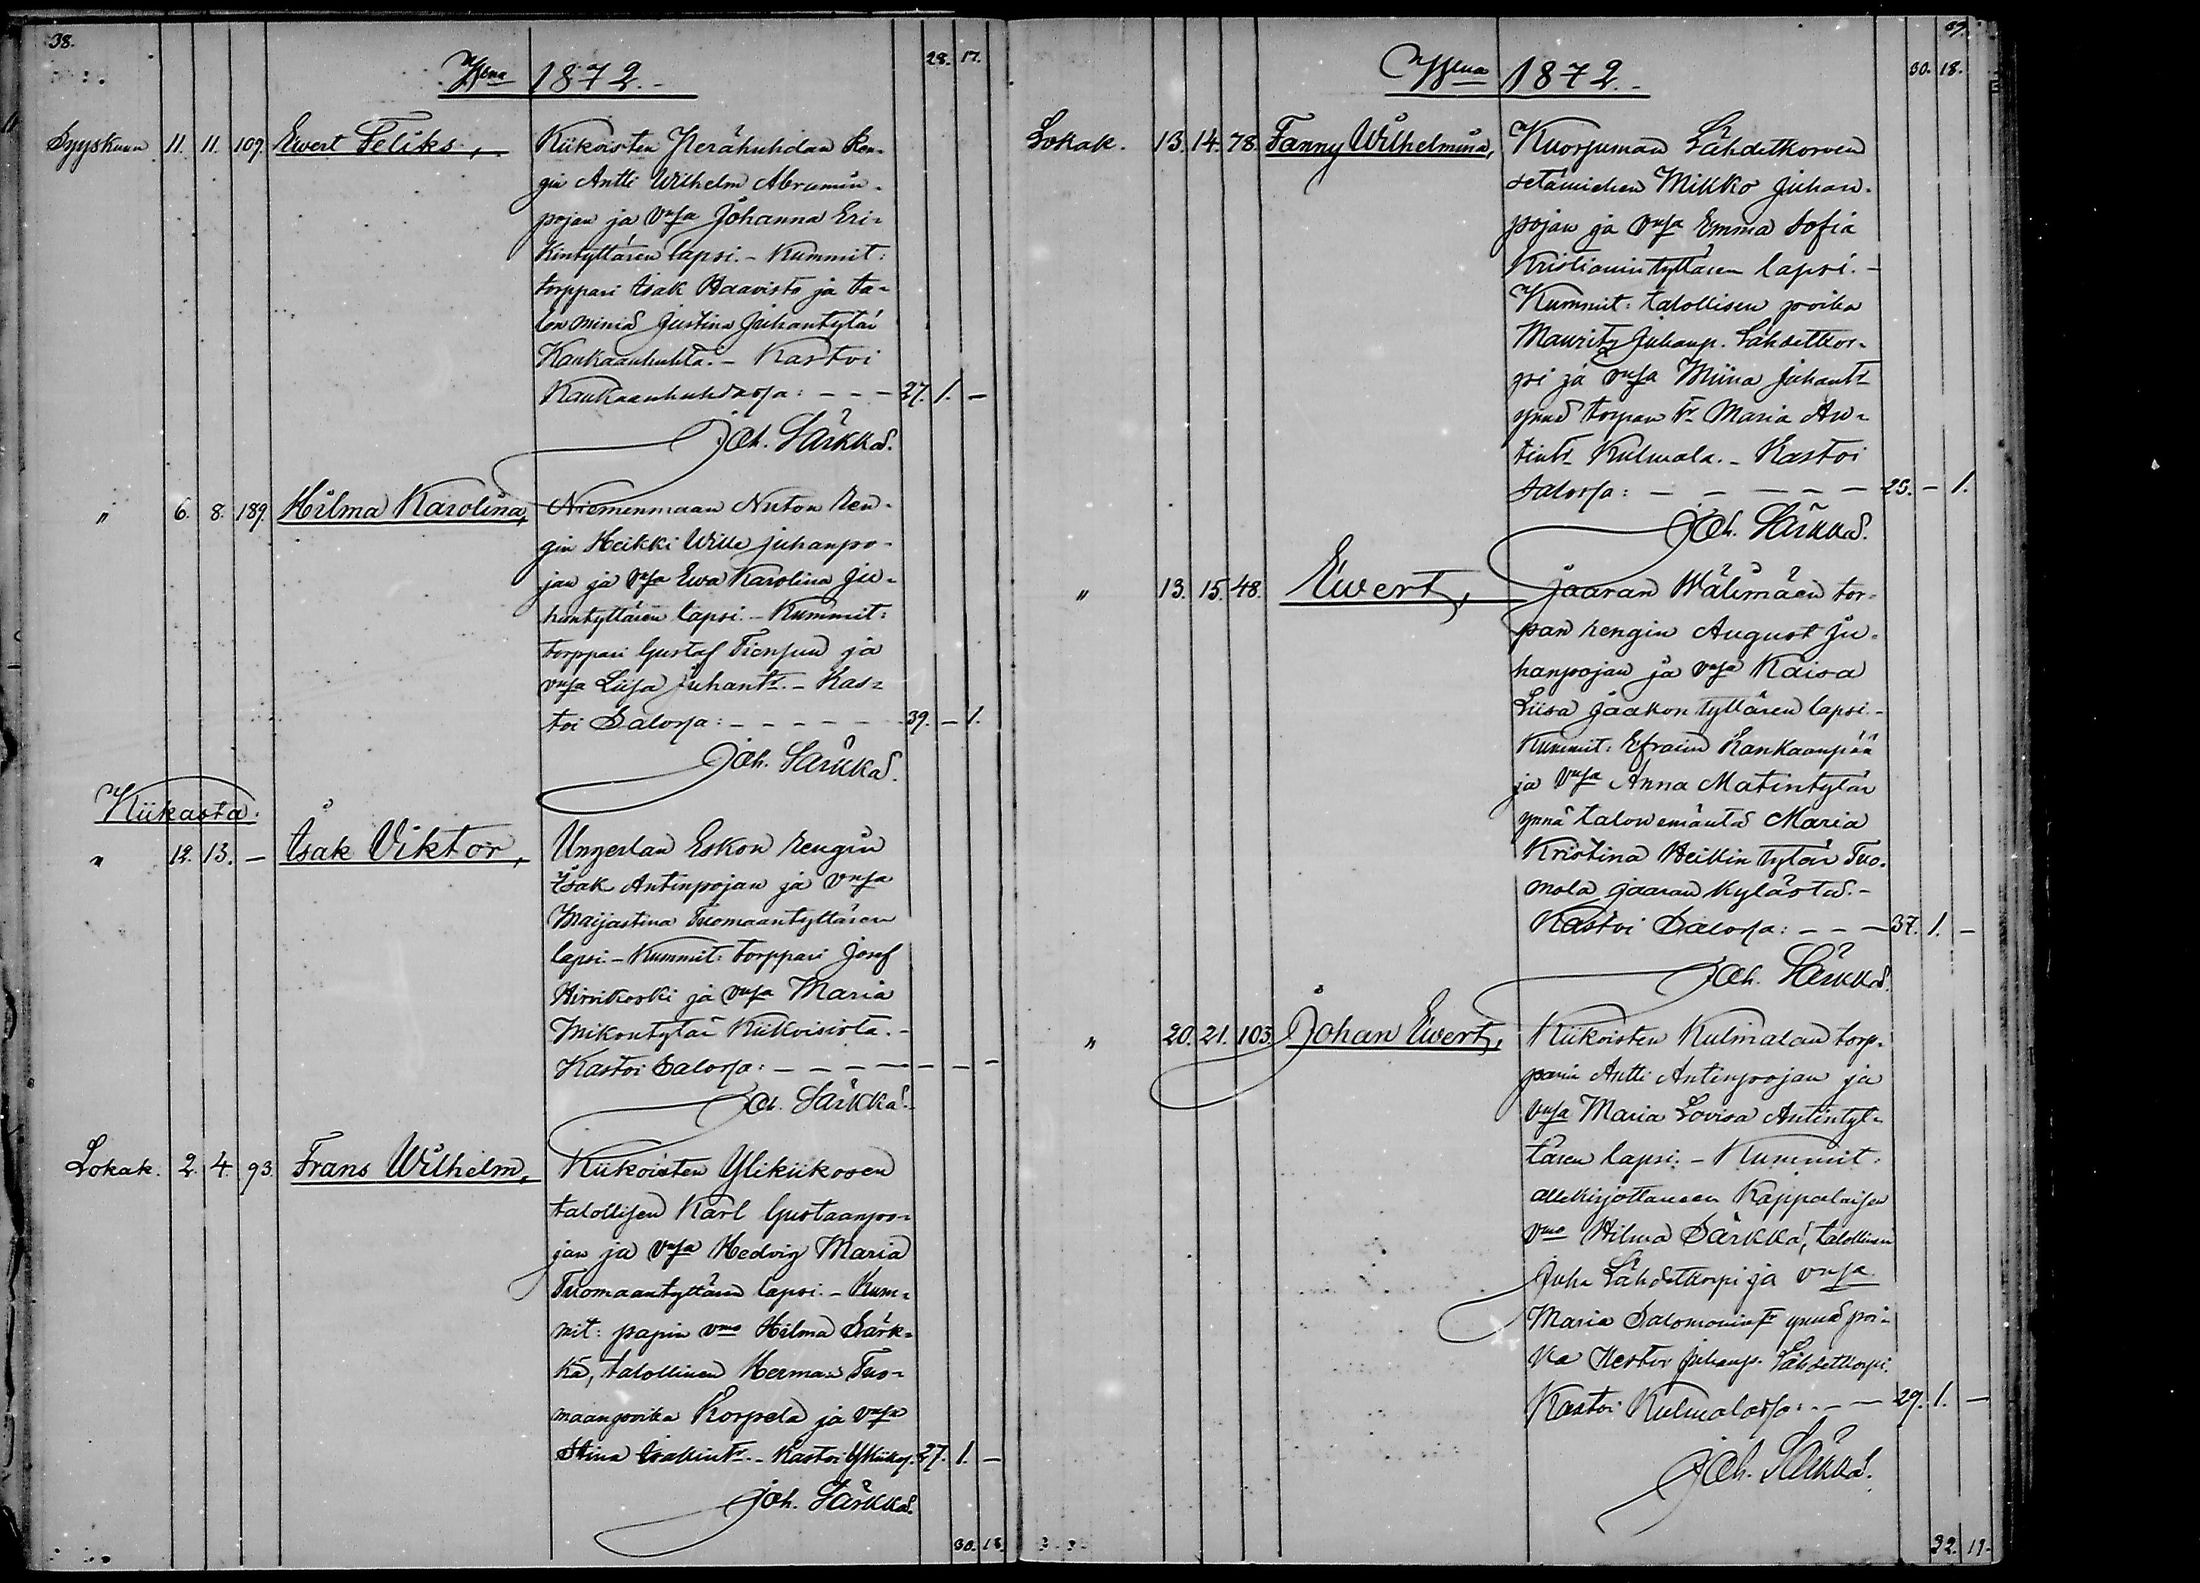 38.
Wna 1872.
28. 17.
Syyskuun 11. 11. 109. Ewert Feliks, Kiikoisten Kerähuhdan Ren-
gin Antti Wilhelm Abramin-
pojan ja vnsa Johanna Eri-
kintyttären lapsi. – Kummit:
torppari Isak Haavisto ja ta-
lon miniä Justina Juhantytär
Kankaanhuhta. – Kastoi
Kankaanhuhdassa: – – – 27. 1. –
Joh. Särkkä.
" 6. 8. 189. Hilma Karolina, Niemenmaan Nuton ren-
gin Heikki Wille Juhanpo-
jan ja vnsa Ewa Karolina Ju-
hantyttären lapsi. – Kummit:
torppari Gustaf Tiensuu ja
vnsa Liisa Juhantr. – Kas-
toi Salossa: – – – – – 39. – 1.
Joh. Särkkä.
Kiikasta.
" 12. 13. – Isak Viktor, Ungerlan Eskon rengin
Isak Antinpojan ja vnsa
Maijastina Tuomaantyttären
lapsi. – Kummit: torppari Josef
Hirvikoski ja vnsa Maria
Mikontytär Kiikoisista. –
Kastoi Salossa: – – – – – – –
Joh. Särkkä.
Lokak. 2. 4. 93. Frans Wilhelm, Kiikoisten Ylikiikosen
talollisen Karl Gustaanpo-
jan ja vnsa Hedvig Maria
Tuomaantyttären lapsi. – Kum-
mit: papin vmo Hilma Särk-
kä, talollinen Herman Tuo-
maanpoika Korpela ja vnsa
Stina Isakintr. – Kastoi Ylikiikos. 27. 1. –
Joh. Särkkä.
30. 18.
39.
Wna 1872.
30. 18.
Lokak. 13. 14. 78. Fanny Wilhelmina, Kuorsuman Lähdetkorven
itsellismiehen Mikko Juhan-
pojan ja vnsa Emma Sofia
Kristianintyttären lapsi. –
Kummit: talollisen poika
Mauritz Juhanp. Lähdetkor-
pi ja vnsa Miina Juhantr
ynnä torpan tr Maria An-
tintr Kulmala. – Kastoi
Salossa: – – – – – 25. – 1.
Joh. Särkkä.
" 13. 15. 48. Ewert, Jaaran Wälimäen tor-
pan rengin August Ju-
hanpojan ja vnsa Kaisa
Liisa Jaakontyttären lapsi. –
Kummit: Efraim Kankaanpää
ja vnsa Anna Matintytär
ynnä talon emäntä Maria
Kristina Heikintytär Tuo-
mola Jaaran kylästä. –
Kastoi Salossa: – – – 37. 1. –
Joh. Särkkä.
" 20. 21. 103. Johan Ewert, Kiikoisten Kulmalan torp-
parin Antti Antinpojan ja
vnsa Maria Lovisa Antintyt-
tären lapsi. – Kummit:
allekirjottaneen Kappalaisen
vmo Hilma Särkkä, talollinen
Juha Lähdetkorpi ja vnsa
Maria Salomonintr ynnä poi-
ka Nestor Juhanp. Lähdetkorpi.
Kastoi Kulmalassa: – – – 29. 1. –
Joh. Särkkä.
32. 19.